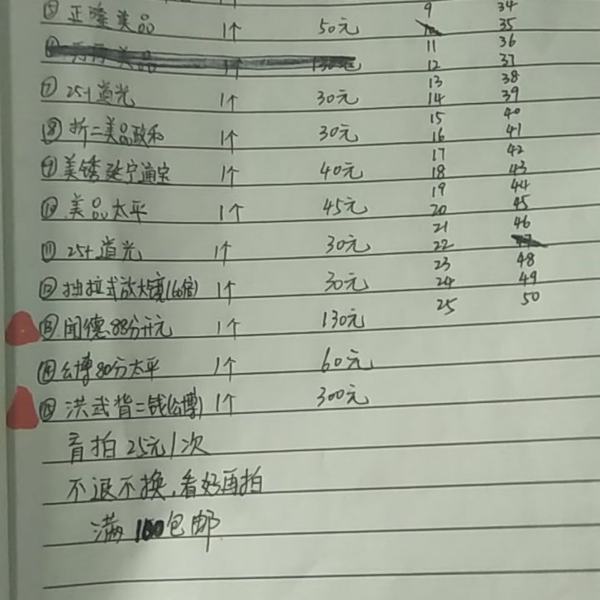 ⑤ 正隆美品 1个 50元
⑦ 25+道光 1个 30元
⑧ 折二美品政和 1个 30元
⑨ 美锈延宁通宝 1个 40元
⑩ 美品太平 1个 45元
⑪ 25+道光 1个 30元
⑫ 抽拉式放大镜(60倍) 1个 30元
⑬ 闻德88分开元 1个 130元
⑭ 公博80分太平 1个 60元
⑮ 洪武背二钱(公博) 1个 300元
盲拍25元1次
不退不换,看好再拍
满100包邮
9 34
10 35
11 36
12 37
13 38
14 39
15 40
16 41
17 42
18 43
19 44
20 45
21 46
22 47
23 48
24 49
25 50